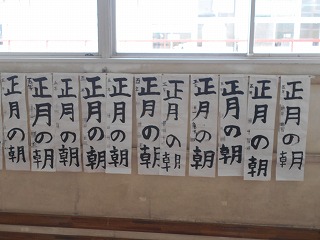 正月の朝
正月の朝
正月の朝
正月の朝
正月の朝
正月の朝
正月の朝
正月の朝
正月の朝
正月の朝
正月の朝